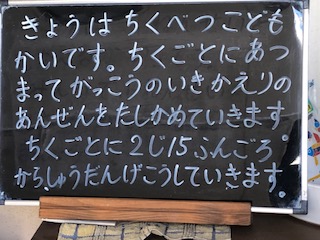 きょうはちくべつこども
かいです。ちくごとにあつ
まってがっこうのいきかえりの
あんぜんをたしかめていきます
ちくごとに2じ15ふんごろ。
からしゅうだんげこうしていきます。